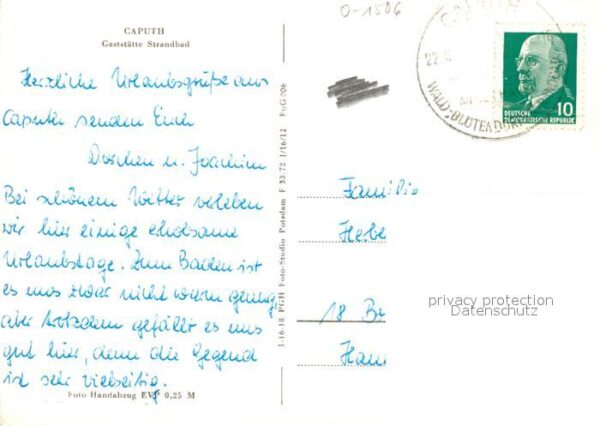 CAPUTH
Gaststätte Strandbad
Herzliche Urlaubsgrüße aus
Caputh senden Euch
Dorchen u. Joachim
Bei schönem Wetter verleben
wir hier einige erholsame
Urlaubstage. Zum Baden ist
es uns zwar nicht warm genug,
aber trotzdem gefällt es uns
gut hier, denn die Gegend
ist sehr vielseitig.
Foto Handabzug EVP 0,25 M
1-16-18 PGH Foto-Studio Potsdam F 33/72 I/16/12 FuG/206
0-1506
CAPUTH
22.
WALD-, BLÜTENDORF
DEUTSCHE
DEMOKRATISCHE REPUBLIK
10
Familie
Hebe
18 Br
Ham
privacy protection
Datenschutz